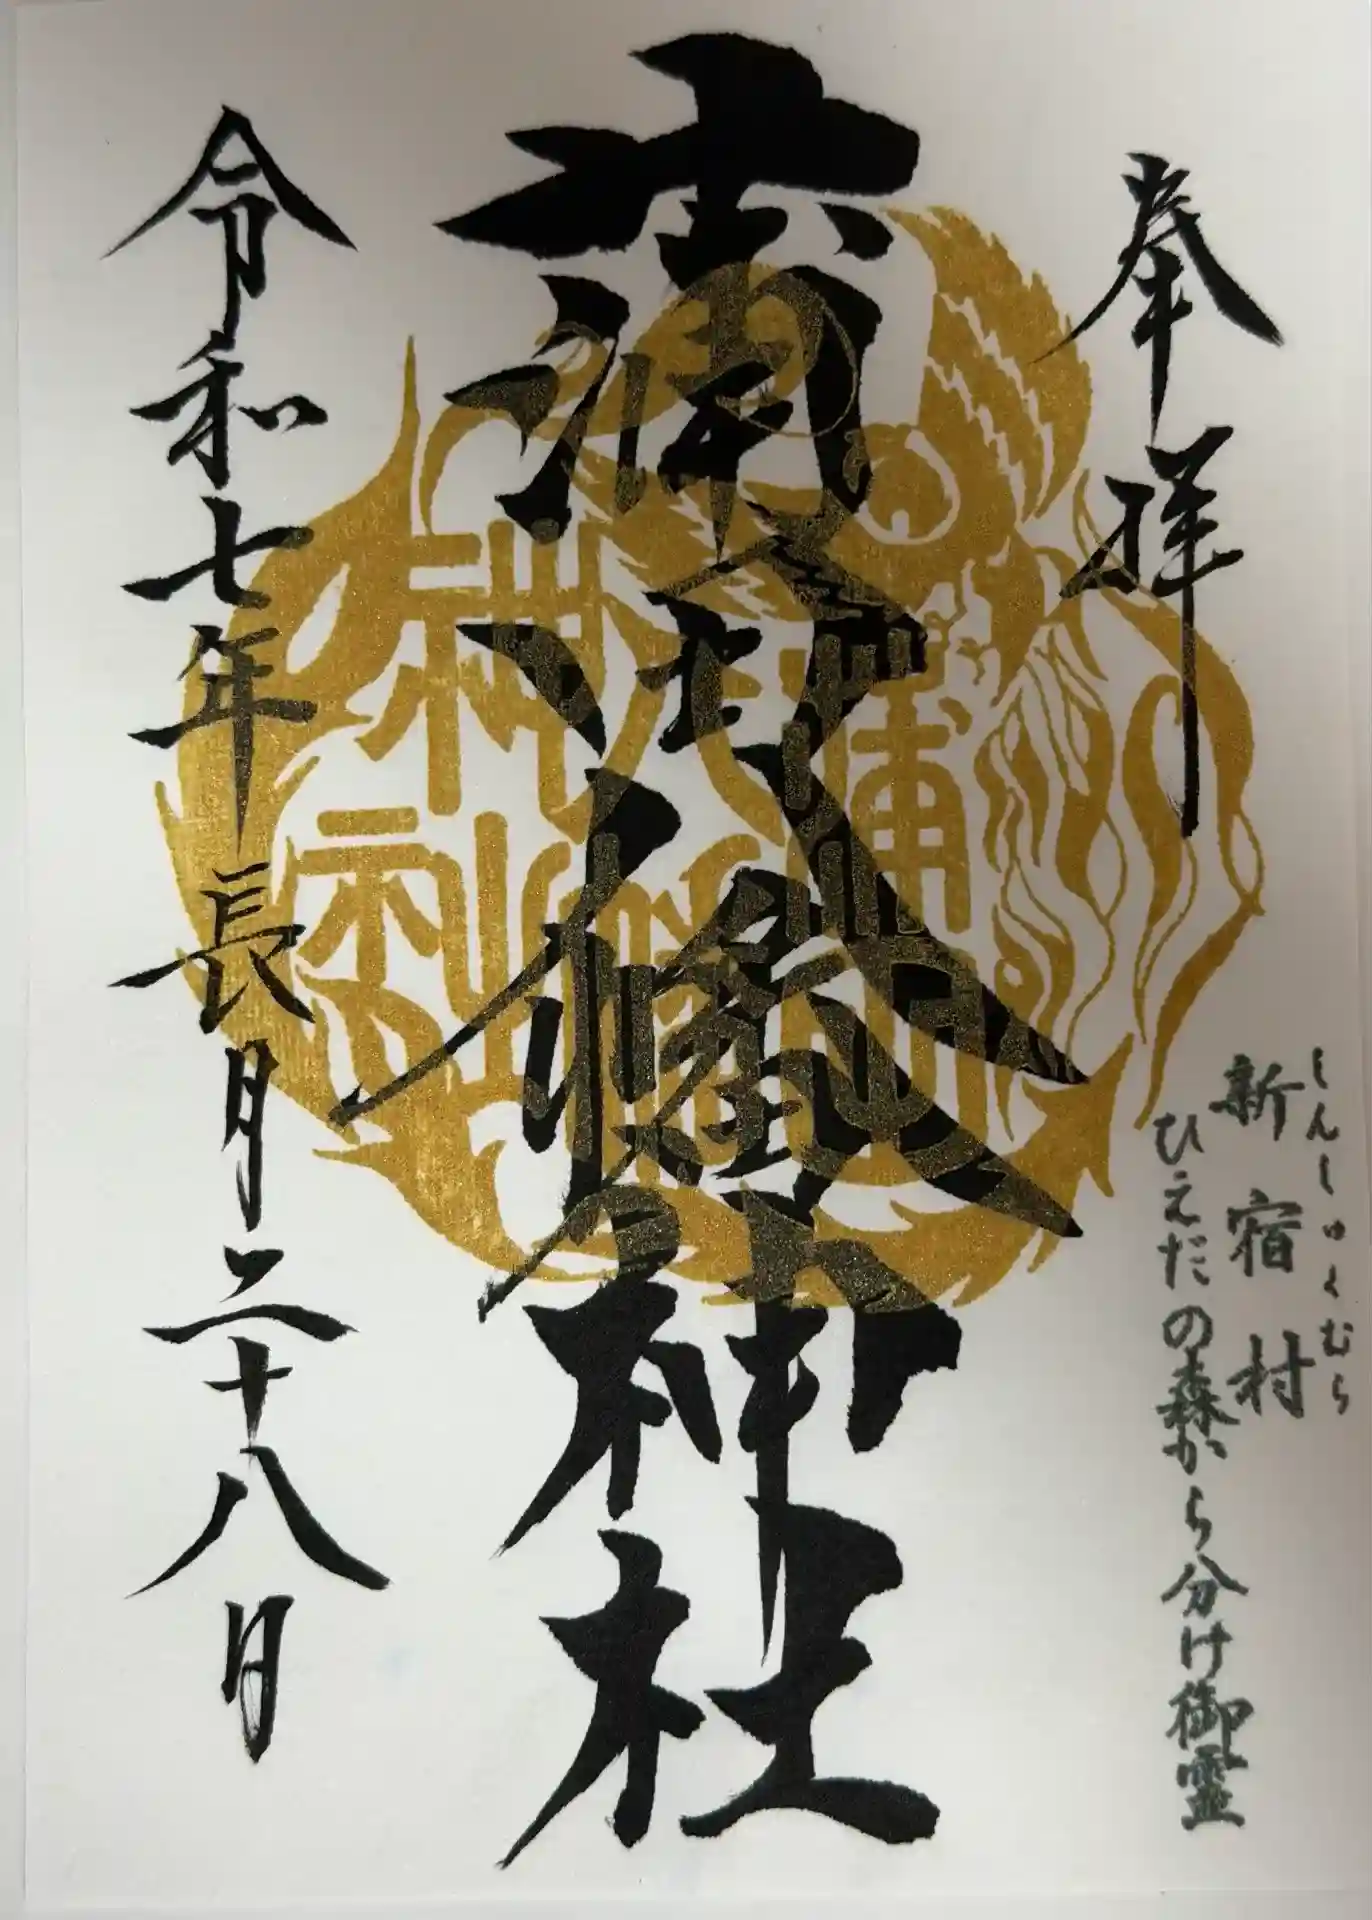 奉拝
しんしゅくむら
新宿村
ひえだの森から分け御霊
蒲田八幡神社
令和七年長月二十八日